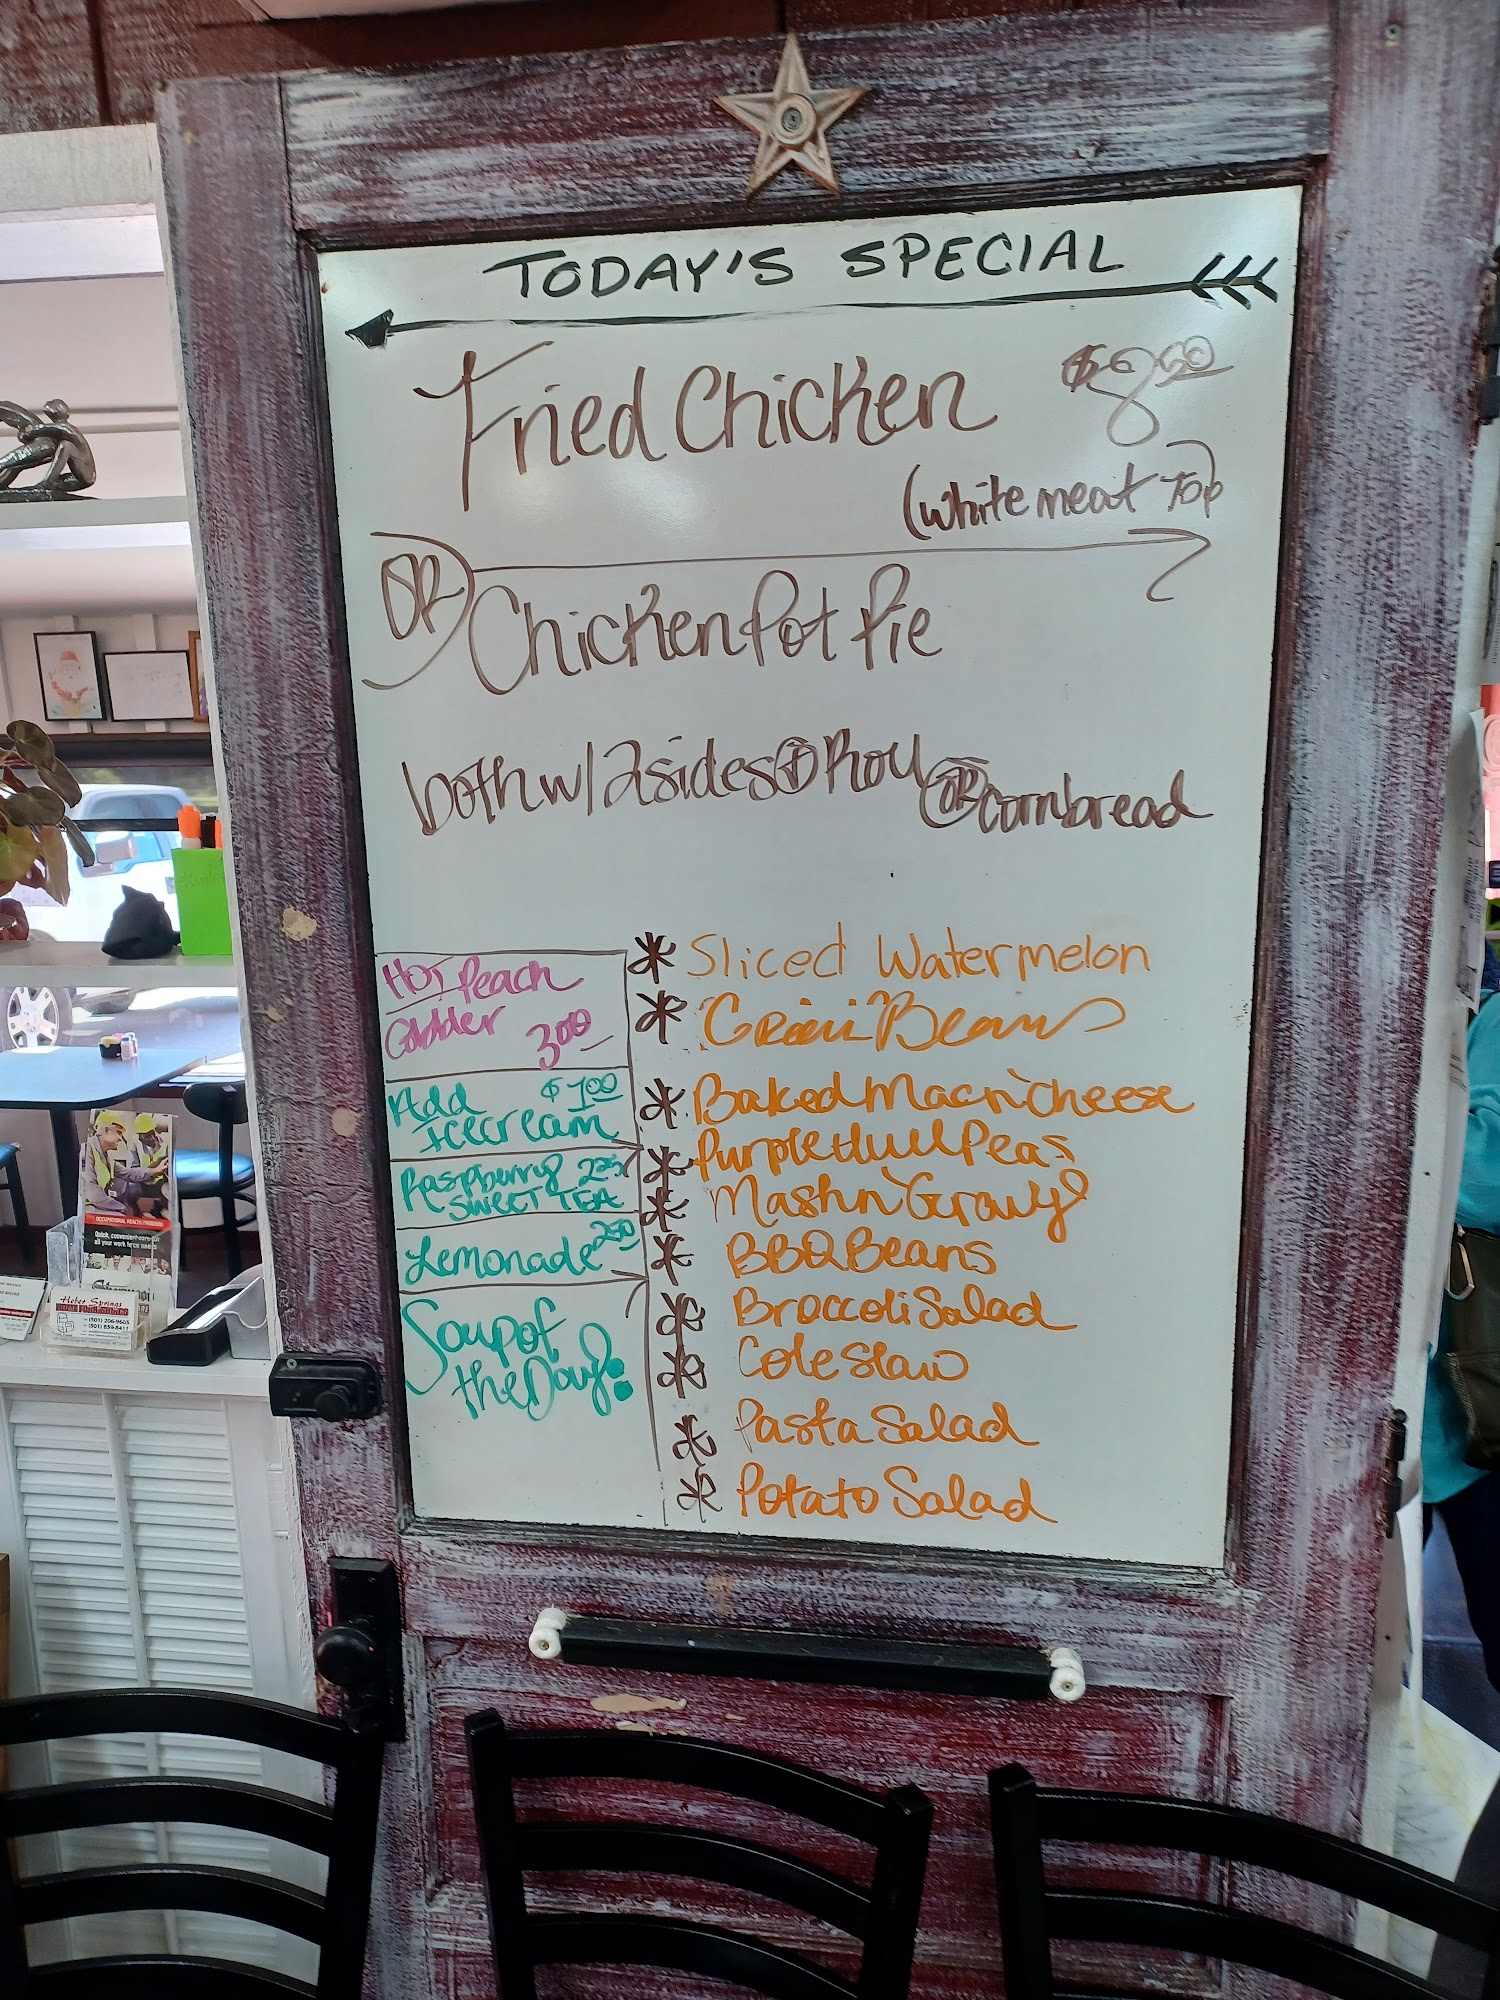 TODAY'S SPECIAL
Fried Chicken $8.50
(white meat Top
OR Chicken Pot Pie
both w/ 2 sides & Roll OR cornbread
HOT Peach
Cobbler 3.00
Add $1.00
Icecream
Raspberry 2.25
SWEET TEA
Lemonade 2.50
Soup of
the Day!
* Sliced Watermelon
* Green Beans
* Baked Mac n' Cheese
* Purple Hull Peas
* Mash n' Gravy
* BBQ Beans
* Broccoli Salad
* Cole Slaw
* Pasta Salad
* Potato Salad
OCCUPATIONAL HEALTH
Quick, convenient care for
all your work force needs
Heber Springs
(501) 206-9605
(501) 859-8411